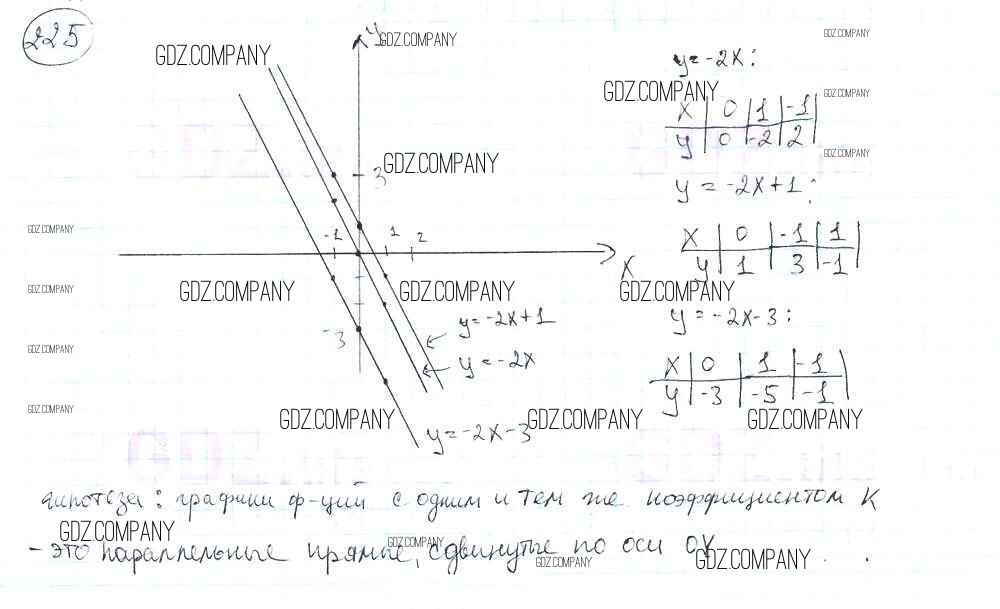 225
GDZ.COMPANY
y
GDZ.COMPANY
GDZ.COMPANY
y=-2x:
GDZ.COMPANY
GDZ.COMPANY
x | 0 | 1 | -1
y | 0 | -2 | 2
3
GDZ.COMPANY
GDZ.COMPANY
y = -2x+1:
GDZ.COMPANY
-1 1 2
x | 0 | -1 | 1
y | 1 | 3 | -1
x
GDZ.COMPANY
GDZ.COMPANY
GDZ.COMPANY
GDZ.COMPANY
y = -2x-3:
-3
y=-2x+1
y=-2x
GDZ.COMPANY
x | 0 | 1 | -1
y | -3 | -5 | -1
GDZ.COMPANY
GDZ.COMPANY
GDZ.COMPANY
GDZ.COMPANY
y=-2x-3
гипотеза: графики ф-ций с одним и тем же коэффициентом K
GDZ.COMPANY
- это параллельные прямые, сдвинутые по оси OY
GDZ.COMPANY
GDZ.COMPANY
GDZ.COMPANY